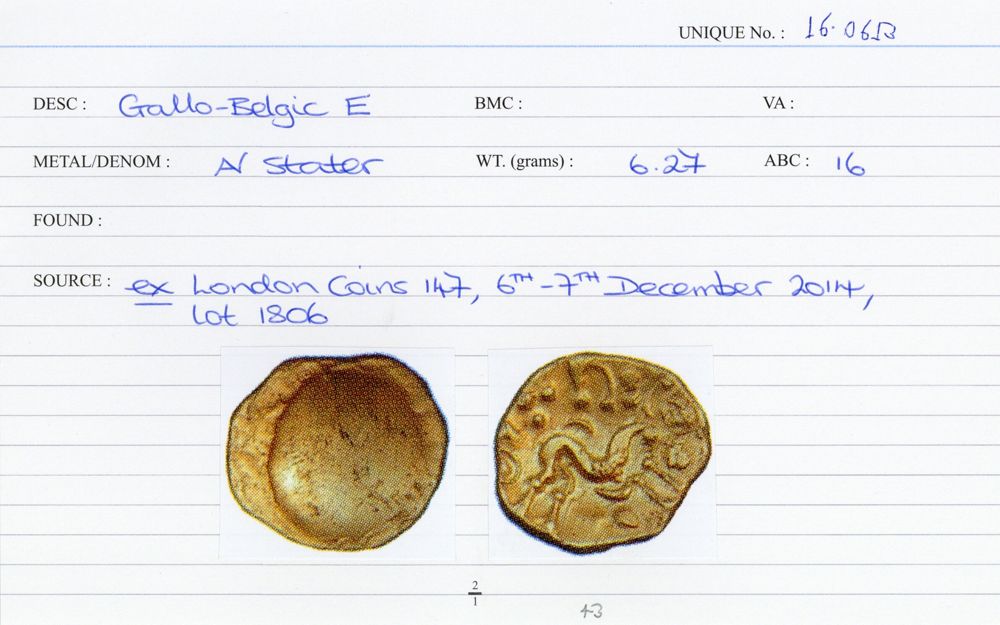 UNIQUE No. : 16.0613
DESC : Gallo-Belgic E BMC : VA :
METAL/DENOM : A/ Stater WT. (grams) : 6.27 ABC : 16
FOUND :
SOURCE : ex London Coins 147, 6TH-7TH December 2014,
Lot 1806
2
1
43